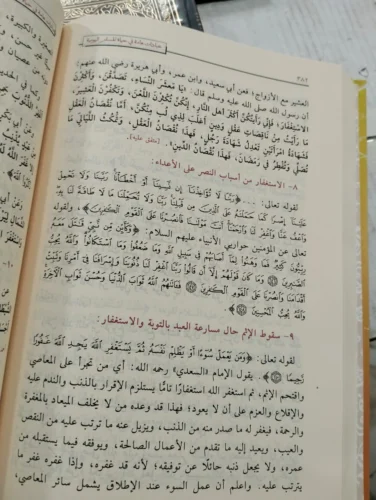 ٣٨٢
العشير مع الأزواج؛ فعن أبي سعيد، وابن عمر، وأبي هريرة رضي الله عنهم:
أن رسول الله صلى الله عليه وسلم قال: «يَا مَعْشَرَ النِّسَاءِ، تَصَدَّقْنَ، وَأَكْثِرْنَ
الِاسْتِغْفَارَ، فَإِنِّي رَأَيْتُكُنَّ أَكْثَرَ أَهْلِ النَّارِ، إِنَّكُنَّ تُكْثِرْنَ اللَّعْنَ، وَتَكْفُرْنَ الْعَشِيرَ،
مَا رَأَيْتُ مِنْ نَاقِصَاتِ عَقْلٍ وَدِينٍ أَغْلَبَ لِذِي لُبٍّ مِنْكُنَّ، أَمَّا نُقْصَانُ الْعَقْلِ،
فَشَهَادَةُ امْرَأَتَيْنِ تَعْدِلُ شَهَادَةَ رَجُلٍ، فَهَذَا نُقْصَانُ الْعَقْلِ، وَتَمْكُثُ اللَّيَالِيَ مَا
تُصَلِّي وَتُفْطِرُ فِي رَمَضَانَ، فَهَذَا نُقْصَانُ الدِّينِ». [متفق عليه].
٨- الاستغفار من أسباب النصر على الأعداء:
لقوله تعالى: ﴿... رَبَّنَا لَا تُؤَاخِذْنَا إِن نَّسِينَا أَوْ أَخْطَأْنَا رَبَّنَا وَلَا تَحْمِلْ
عَلَيْنَا إِصْرًا كَمَا حَمَلْتَهُ عَلَى الَّذِينَ مِن قَبْلِنَا رَبَّنَا وَلَا تُحَمِّلْنَا مَا لَا طَاقَةَ لَنَا بِهِ
وَاعْفُ عَنَّا وَاغْفِرْ لَنَا وَارْحَمْنَا أَنتَ مَوْلَانَا فَانصُرْنَا عَلَى الْقَوْمِ الْكَافِرِينَ﴾، وقوله
تعالى عن المؤمنين حواريي الأنبياء عليهم السلام: ﴿وَكَأَيِّن مِّن نَّبِيٍّ قَاتَلَ مَعَهُ
رِبِّيُّونَ كَثِيرٌ فَمَا وَهَنُوا لِمَا أَصَابَهُمْ فِي سَبِيلِ اللَّهِ وَمَا ضَعُفُوا وَمَا اسْتَكَانُوا وَاللَّهُ يُحِبُّ
الصَّابِرِينَ وَمَا كَانَ قَوْلَهُمْ إِلَّا أَن قَالُوا رَبَّنَا اغْفِرْ لَنَا ذُنُوبَنَا وَإِسْرَافَنَا فِي أَمْرِنَا وَثَبِّتْ
أَقْدَامَنَا وَانصُرْنَا عَلَى الْقَوْمِ الْكَافِرِينَ فَآتَاهُمُ اللَّهُ ثَوَابَ الدُّنْيَا وَحُسْنَ ثَوَابِ الْآخِرَةِ
وَاللَّهُ يُحِبُّ الْمُحْسِنِينَ﴾.
٩- سقوط الإثم حال مسارعة العبد بالتوبة والاستغفار:
لقوله تعالى: ﴿وَمَن يَعْمَلْ سُوءًا أَوْ يَظْلِمْ نَفْسَهُ ثُمَّ يَسْتَغْفِرِ اللَّهَ يَجِدِ اللَّهَ غَفُورًا
رَّحِيمًا﴾. يقول الإمام «السعدي» رحمه الله: أي من تجرأ على المعاصي
واقتحم الإثم، ثم استغفر الله استغفارًا تامًّا يستلزم الإقرار بالذنب والندم عليه
والإقلاع والعزم على أن لا يعود؛ فهذا قد وعده من لا يخلف الميعاد بالمغفرة
والرحمة، فيغفر له ما صدر منه من الذنب، ويزيل عنه ما ترتب عليه من النقص
والعيب، ويعيد إليه ما تقدم من الأعمال الصالحة، ويوفقه فيما يستقبله من
عمره، ولا يجعل ذنبه حائلًا عن توفيقه؛ لأنه قد غفره، وإذا غفره غفر ما
يترتب عليه. واعلم أن عمل السوء عند الإطلاق يشمل سائر المعاصي،